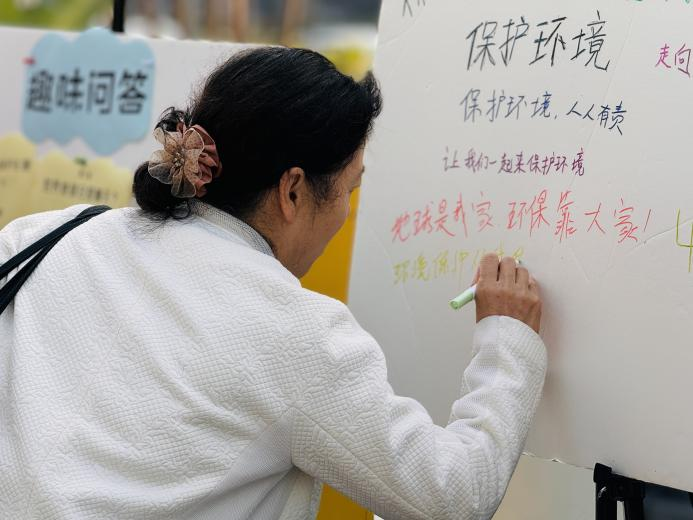 趣味问答
保护环境
走向
保护环境，人人有责
让我们一起来保护环境
地球是我家 环保靠大家！
环境保护